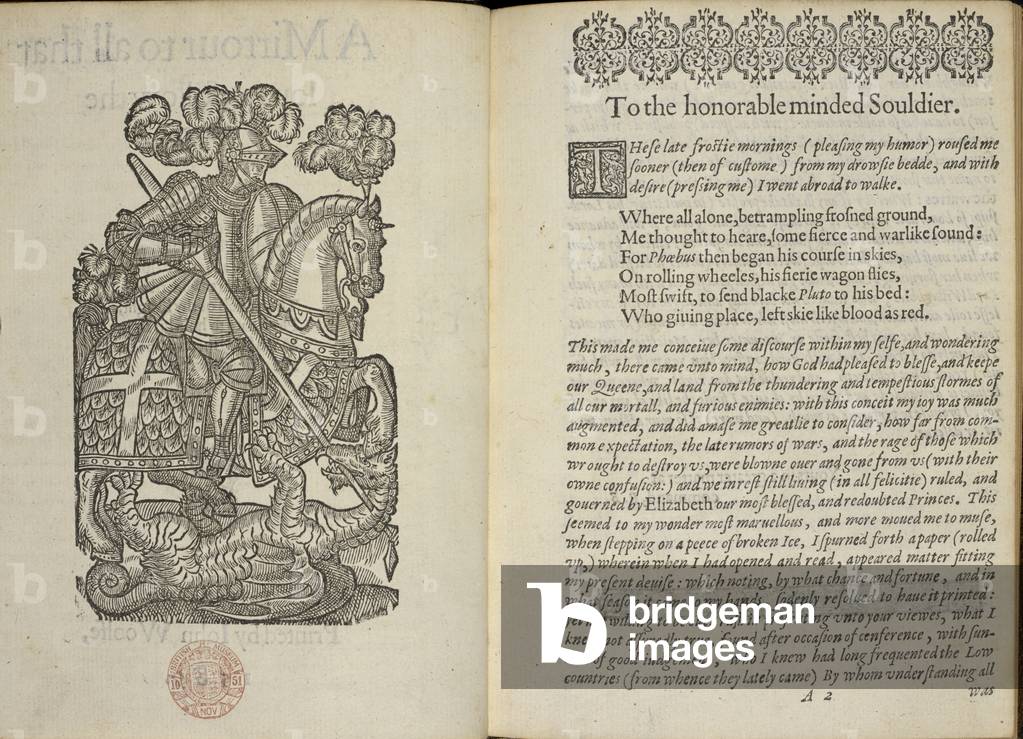 To the honorable minded Souldier.
THeſe late froſtie mornings (pleaſing my humor) rouſed me
ſooner (then of cuſtome) from my drowſie bedde, and with
deſire (preſsing me) I went abroad to walke.
Where all alone, betrampling froſned ground,
Me thought to heare, ſome fierce and warlike ſound:
For Phœbus then began his courſe in skies,
On rolling wheeles, his fierie wagon flies,
Moſt ſwift, to ſend blacke Pluto to his bed:
Who giuing place, left skie like blood as red.
This made me conceiue ſome diſcourſe within my ſelfe, and wondering
much, there came vnto mind, how God had pleaſed to bleſſe, and keepe
our Queene, and land from the thundering and tempeſtious ſtormes of
all our mortall, and furious enimies: with this conceit my ioy was much
augmented, and did amaſe me greatlie to conſider, how far from com-
mon expectation, the late rumors of wars, and the rage of thoſe which
wrought to deſtroy vs, were blowne ouer and gone from vs (with their
owne confuſion:) and we in reſt ſtill liuing (in all felicitie) ruled, and
gouerned by Elizabeth our moſt bleſſed, and redoubted Princes. This
ſeemed to my wonder moſt maruellous, and more moued me to muſe,
when ſtepping on a peece of broken Ice, I ſpurned forth a paper (rolled
vp,) wherein when I had opened and read, appeared matter fitting
my preſent deuiſe: which noting, by what chance and fortune, and in
what ſeaſon it came my hands, ſodenly reſolued to haue it printed:
vnto your viewes, what I
knew not after occaſion of conference, with ſun-
of good I knew had long frequented the Low
countries (from whence they lately came) By whom vnderſtanding all
A 2
was
bridgeman
images
b
BRITISH MUSEUM
10
51
NOV